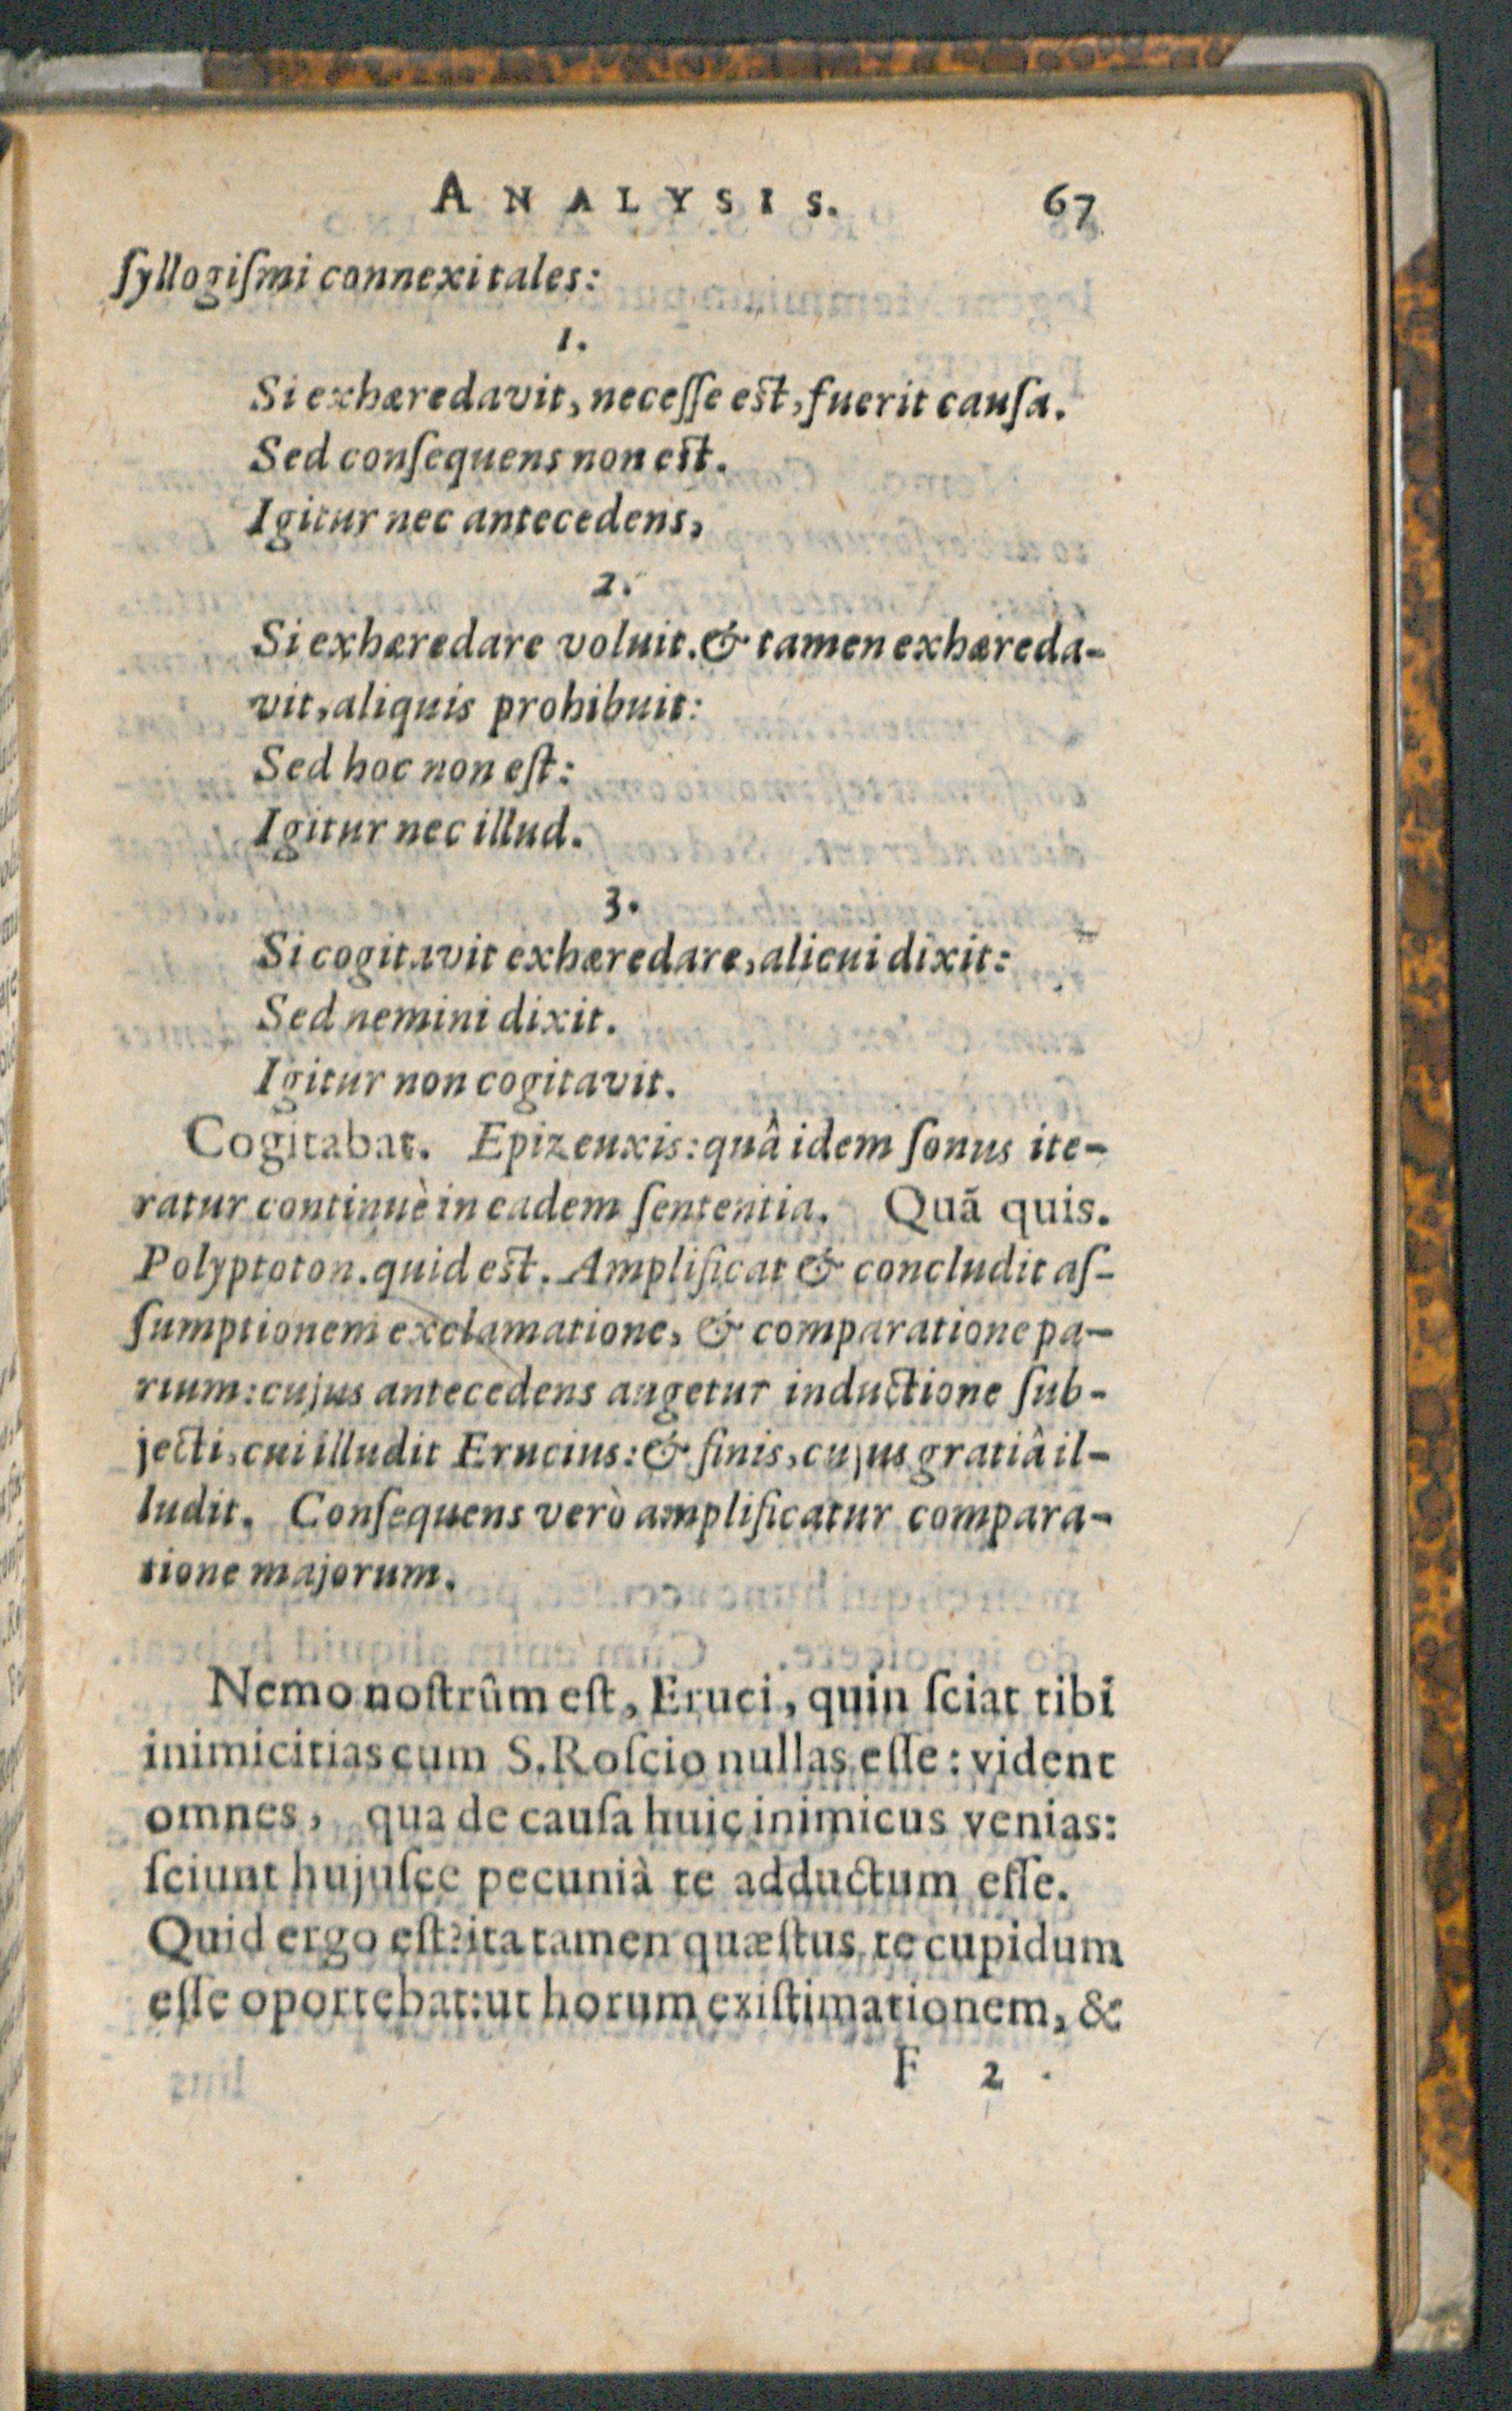 ANALYSIS. 67
ſyllogiſmi connexi tales:
1.
Si exhæredavit, neceſſe est, fuerit cauſa.
Sed conſequens non est.
Igitur nec antecedens,
2.
Si exhæredare voluit. & tamen exhæreda-
vit, aliquis prohibuit:
Sed hoc non eſt:
Igitur nec illud.
3.
Si cogitavit exhæredare, alicui dixit:
Sed nemini dixit.
Igitur non cogitavit.
Cogitabat. Epizeuxis: quâ idem ſonus ite-
ratur continuè in eadem ſententia. Quã quis.
Polyptoton. quid est. Amplificat & concludit aſ-
ſumptionem exclamatione, & comparatione pa-
rium: cujus antecedens augetur inductione ſub-
jecti, cui illudit Erucius: & finis, cujus gratiâ il-
ludit. Conſequens verò amplificatur compara-
tione majorum.
Nemo noſtrûm eſt, Eruci, quin ſciat tibi
inimicitias cum S. Roſcio nullas eſſe: vident
omnes, qua de cauſa huic inimicus venias:
ſciunt hujuſce pecuniâ te adductum eſſe.
Quid ergo eſt? ita tamen quæſtus te cupidum
eſſe oportebat: ut horum exiſtimationem, &
F 2